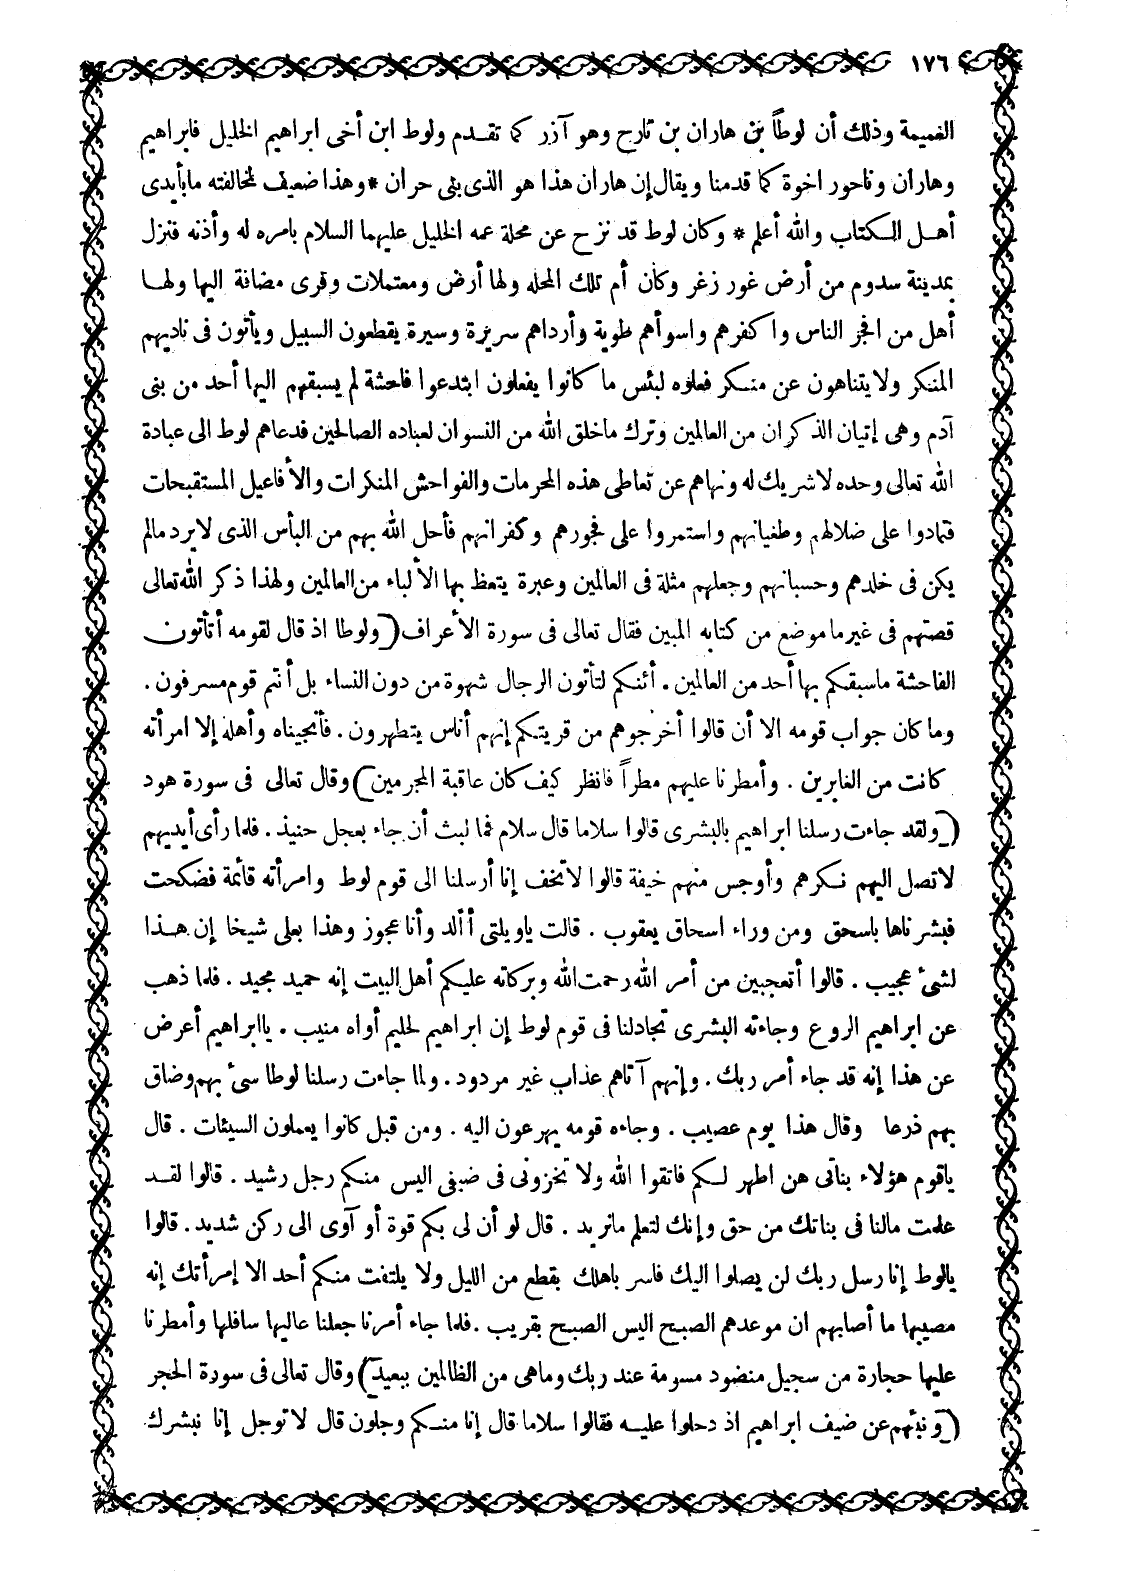 ١٧٦
الغميمة وذلك أن لوطاً بن هاران بن تارح وهو آزر كما تقدم ولوط ابن أخى ابراهيم الخليل فابراهيم
وهاران وناحور اخوة كما قدمنا ويقال إن هاران هذا هو الذى بنى حران * وهذا ضعيف لمخالفته ما بأيدى
أهل الكتاب والله أعلم * وكان لوط قد نزح عن محلة عمه الخليل عليهما السلام بامره له وأذنه فنزل
بمدينة سدوم من أرض غور زغر وكان أم تلك المحله ولها أرض ومعتملات وقرى مضافة اليها ولها
أهل من افجر الناس واكفرهم واسوأهم طوية وأرداهم سريرة وسيرة يقطعون السبيل ويأتون فى ناديهم
المنكر ولا يتناهون عن منكر فعلوه لبئس ما كانوا يفعلون ابتدعوا فاحشة لم يسبقهم اليها أحد من بنى
آدم وهى إتيان الذكران من العالمين وترك ما خلق الله من النسوان لعباده الصالحين فدعاهم لوط الى عبادة
الله تعالى وحده لا شريك له ونهاهم عن تعاطى هذه المحرمات والفواحش المنكرات والأفاعيل المستقبحات
فتمادوا على ضلالهم وطغيانهم واستمروا على فجورهم وكفرانهم فأحل الله بهم من البأس الذى لا يرد مالم
يكن فى خلدهم وحسبانهم وجعلهم مثلة فى العالمين وعبرة يتعظ بها الألباء من العالمين ولهذا ذكر الله تعالى
قصتهم فى غير ما موضع من كتابه المبين فقال تعالى فى سورة الأعراف (ولوطا اذ قال لقومه أتأتون
الفاحشة ماسبقكم بها أحد من العالمين . أئنكم لتأتون الرجال شهوة من دون النساء بل أنتم قوم مسرفون .
وما كان جواب قومه الا أن قالوا أخرجوهم من قريتكم إنهم أناس يتطهرون . فأنجيناه وأهله إلا امرأته
كانت من الغابرين . وأمطرنا عليهم مطراً فانظر كيف كان عاقبة المجرمين) وقال تعالى فى سورة هود
(ولقد جاءت رسلنا ابراهيم بالبشرى قالوا سلاما قال سلام فما لبث أن جاء بعجل حنيذ . فلما رأى أيديهم
لا تصل اليهم نكرهم وأوجس منهم خيفة قالوا لا تخف إنا أرسلنا الى قوم لوط وامرأته قائمة فضكحت
فبشرناها باسحق ومن وراء اسحاق يعقوب . قالت ياويلتى أألد وأنا عجوز وهذا بعلى شيخا إن هذا
لشئ عجيب . قالوا أتعجبين من أمر الله رحمت الله وبركاته عليكم أهل البيت إنه حميد مجيد . فلما ذهب
عن ابراهيم الروع وجاءته البشرى تجادلنا فى قوم لوط إن ابراهيم لحليم أواه منيب . ياابراهيم أعرض
عن هذا إنه قد جاء أمر ربك . وإنهم آتاهم عذاب غير مردود . ولما جاءت رسلنا لوطا سئ بهم وضاق
بهم ذرعا وقال هذا يوم عصيب . وجاءه قومه يهرعون اليه . ومن قبل كانوا يعملون السيئات . قال
ياقوم هؤلاء بناتى هن اطهر لكم فاتقوا الله ولا تخزونى فى ضيفى اليس منكم رجل رشيد . قالوا لقد
علمت مالنا فى بناتك من حق وإنك لتعلم مانريد . قال لو أن لى بكم قوة أو آوى الى ركن شديد . قالوا
يالوط إنا رسل ربك لن يصلوا اليك فاسر باهلك بقطع من الليل ولا يلتفت منكم أحد الا إمرأتك إنه
مصيبها ما أصابهم ان موعدهم الصبح اليس الصبح بقريب . فلما جاء أمرنا جعلنا عاليها سافلها وأمطرنا
عليها حجارة من سجيل منضود مسومة عند ربك وماهى من الظالمين ببعيد) وقال تعالى فى سورة الحجر
(ونبئهم عن ضيف ابراهيم اذ دحلوا عليه فقالوا سلاما قال إنا منكم وجلون قال لا توجل إنا نبشرك